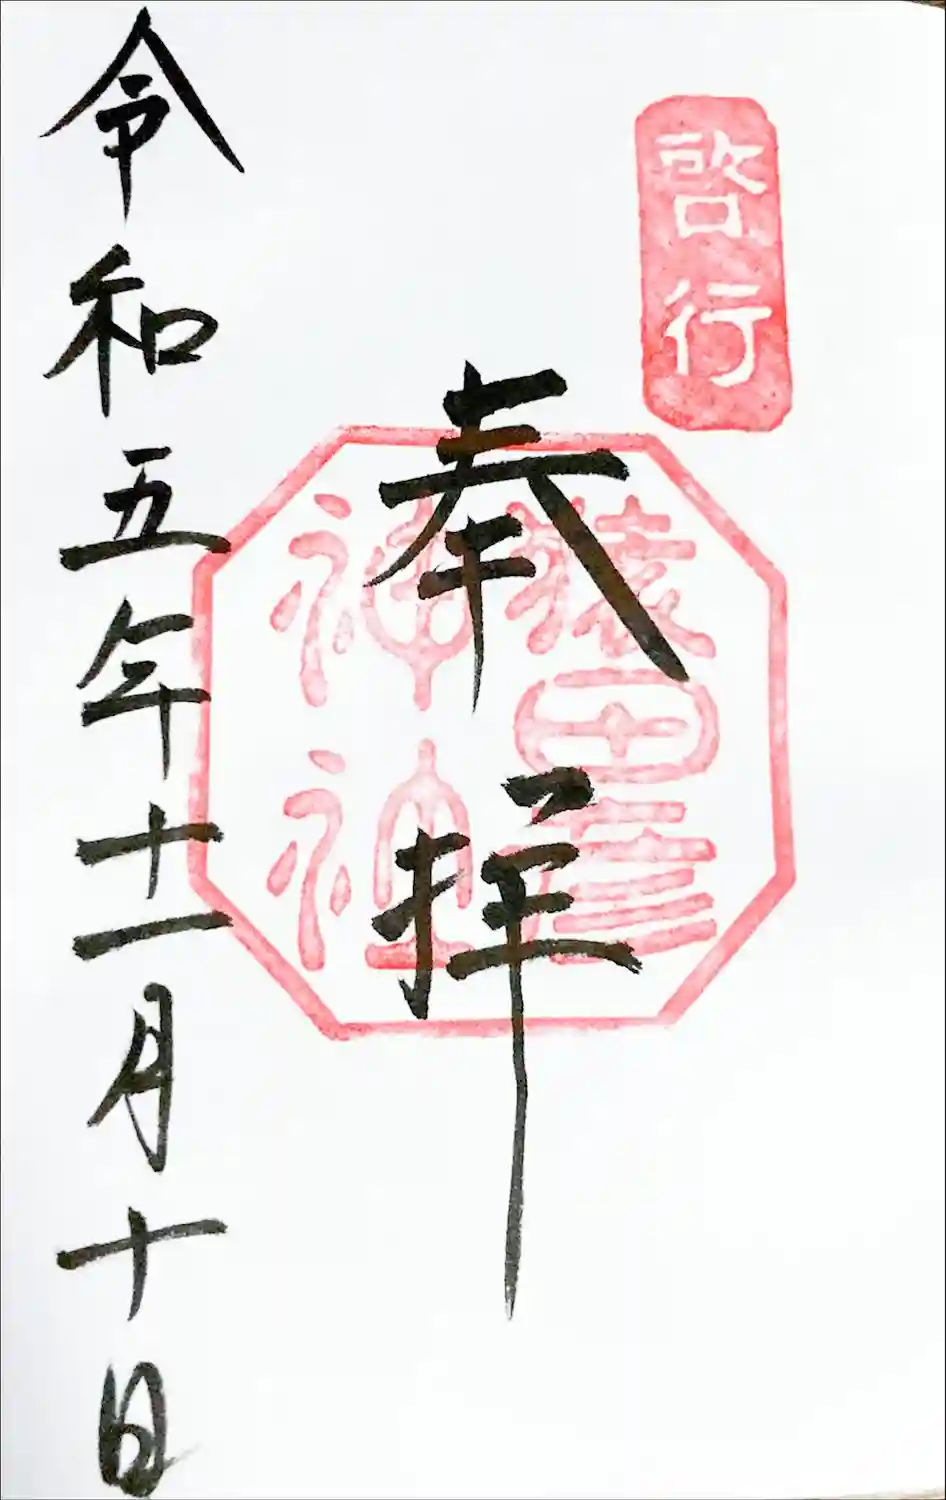 啓行
猿田彦
神神社
奉拝
令和五年十一月十日